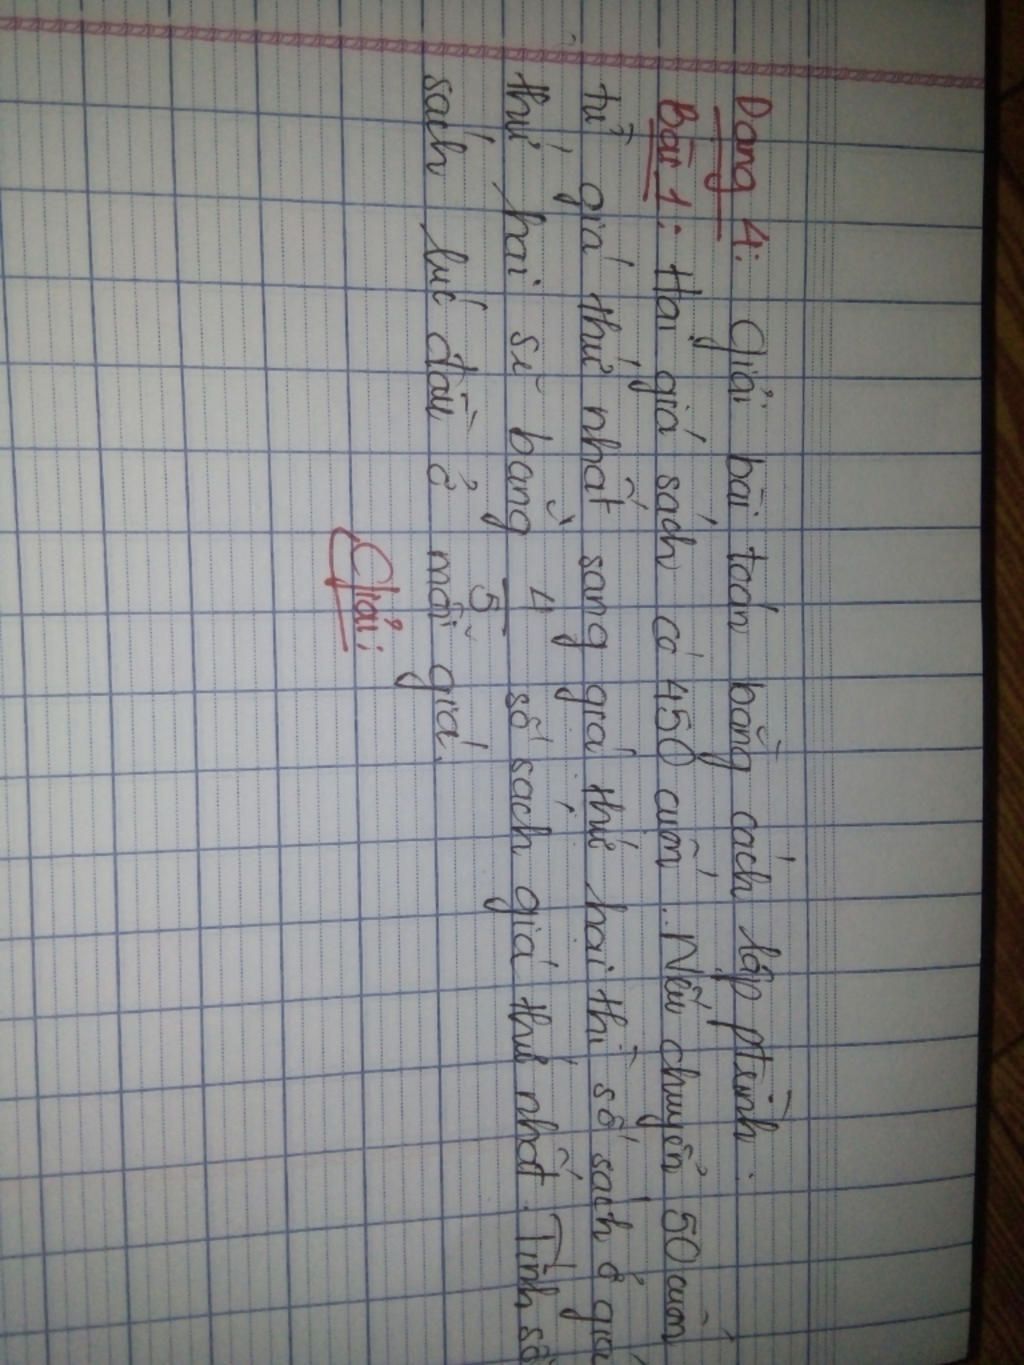 Dạng 4: Giải bài toán bằng cách lập ptrình.
Bài 1: Hai giá sách có 450 cuốn. Nếu chuyển 50 cuốn
từ giá thứ nhất sang giá thứ hai thì số sách ở giá
thứ hai sẽ bằng 4/5 số sách giá thứ nhất. Tính số
sách lúc đầu ở mỗi giá.
Giải: